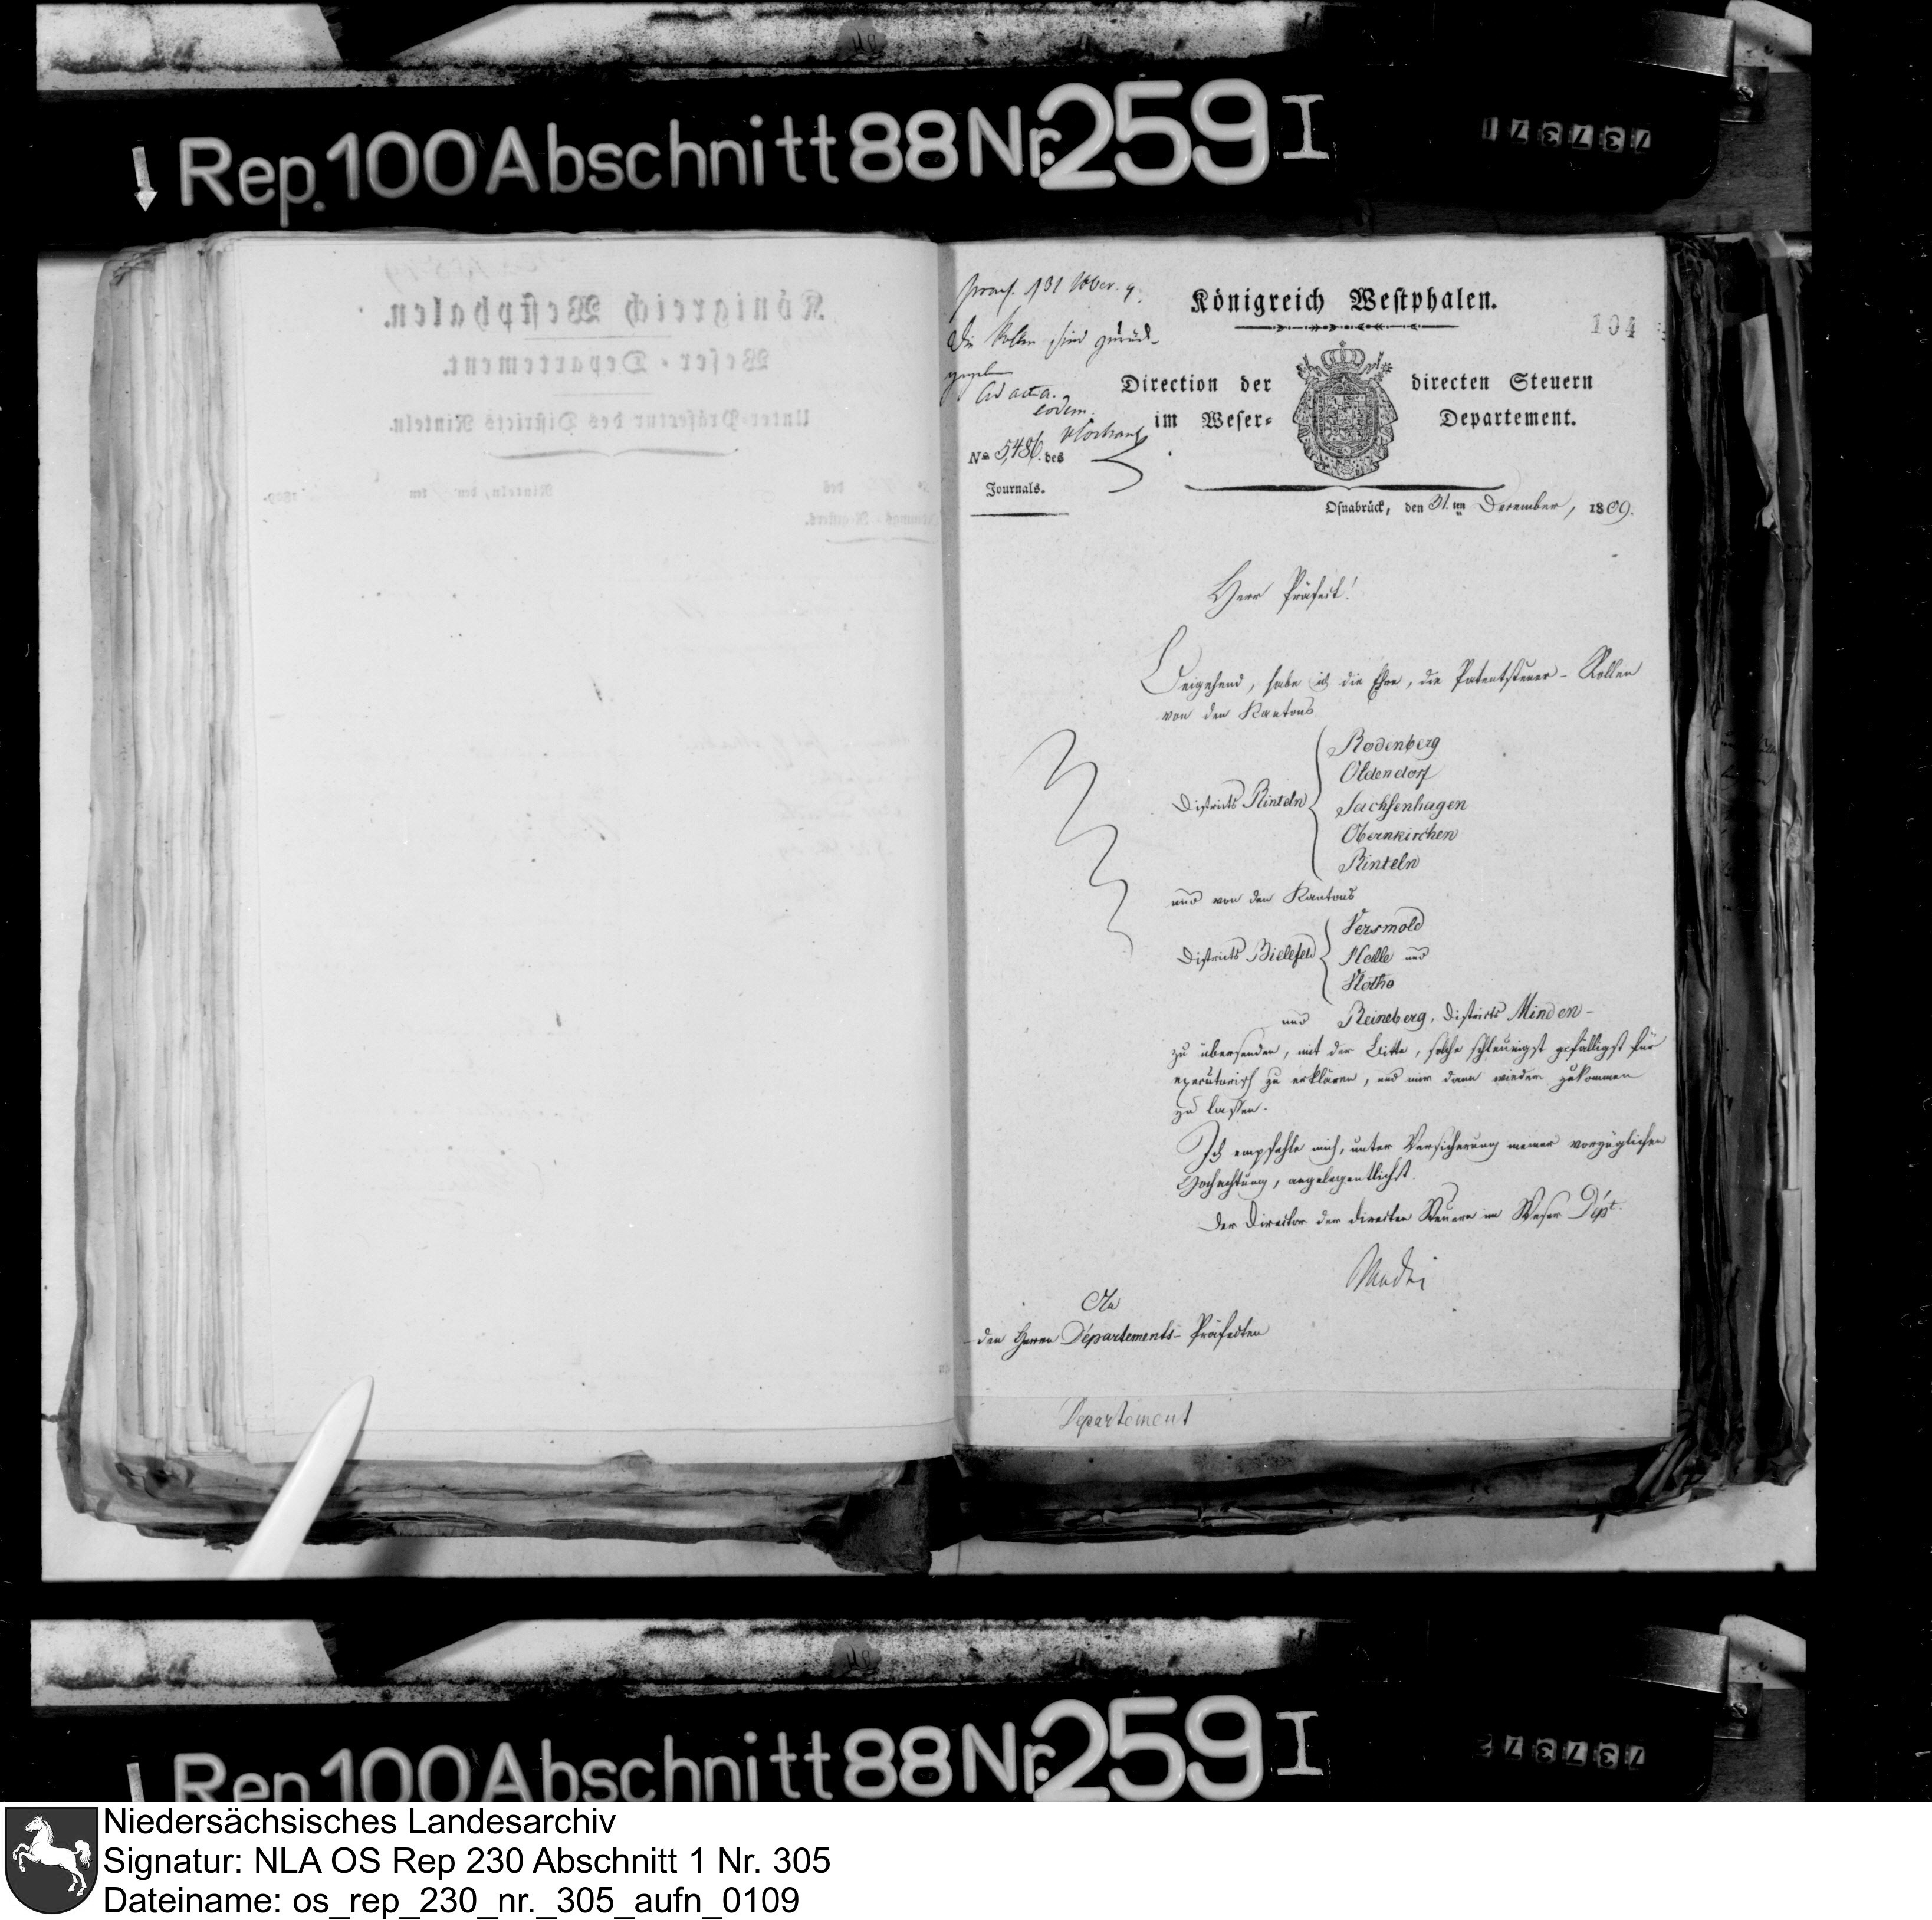 Rep. 100 Abschnitt 88 Nr. 259 I
Königreich Westphalen.
104
præs. 31 Xber. 9.
Die Rollen sind zurück-
gegeben
ad acta.
eodem.
Direction der directen Steuern
im Weser- Departement.
No 5,486. des
Journals.
Osnabrück, den 31.ten December, 1809.
Herr Präfect!
Beigehend, habe ich die Ehre, die Patentsteuer-Rollen
von den Kantons
Rodenberg
Oldendorf
Districts Rinteln
Sachsenhagen
Obernkirchen
Rinteln
und von den Kantons
Versmold
Districts Bielefeld
Halle und
Vlotho
und Reineberg, Districts Minden-
zu übersenden, mit der Bitte, solche schleunigst gefälligst für
executorisch zu erklären, und mir dann wieder zukommen
zu lassen.
Ich empfehle mich, unter Versicherung meiner vorzüglichen
Hochachtung, angelegentlichst.
Der Director der directen Steuern im Weser Dépt.
An
den Herrn Départements-Präfecten
Departement
Königreich Westphalen.
Weser-Departement.
Unter-Präfectur des Districts Rinteln.
Rep. 100 Abschnitt 88 Nr. 259 I
Niedersächsisches Landesarchiv
Signatur: NLA OS Rep 230 Abschnitt 1 Nr. 305
Dateiname: os_rep_230_nr._305_aufn_0109